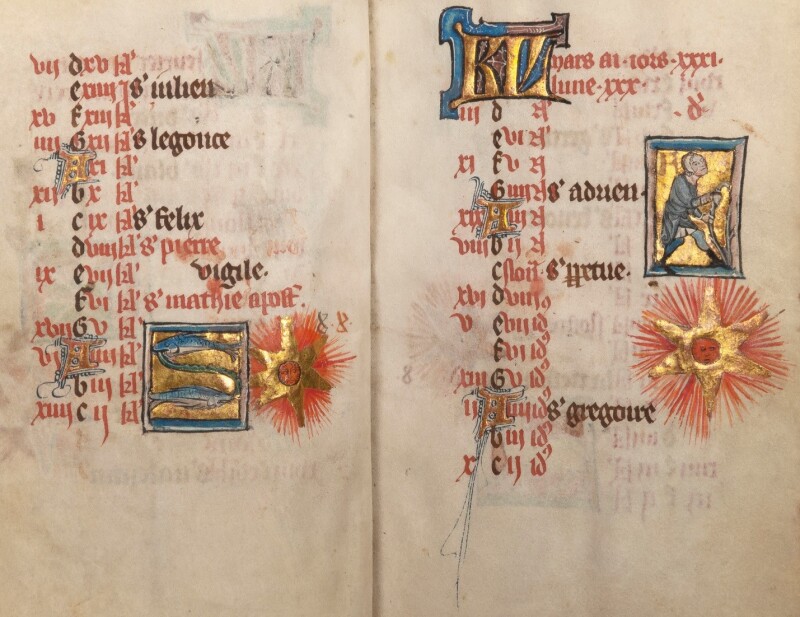 vii d xv kl'
e xiiii kl' s' iulien
xv f xiii kl'
iiii G xii kl' s' legonce
A xi kl'
xii b x kl'
i c ix kl' s' felix
d viii kl' s' pierre
ix e vii kl' vigile.
f vi kl' s' mathie apost'.
xvii G v kl'
vi A iiii kl'
b iii kl'
xiiii c ii kl'
KL mars ai · iors · xxxi.
lune · xxx ·
iii d
e vi n
xi f v n
G iiii n s' adrien.
xix A iii n
viii b ii n
c non' s' ppetue.
xvi d viii id'
v e vii id'
f vi id'
xiii G v id'
ii A iiii id' s' gregoire
b iii id'
x c ii id'